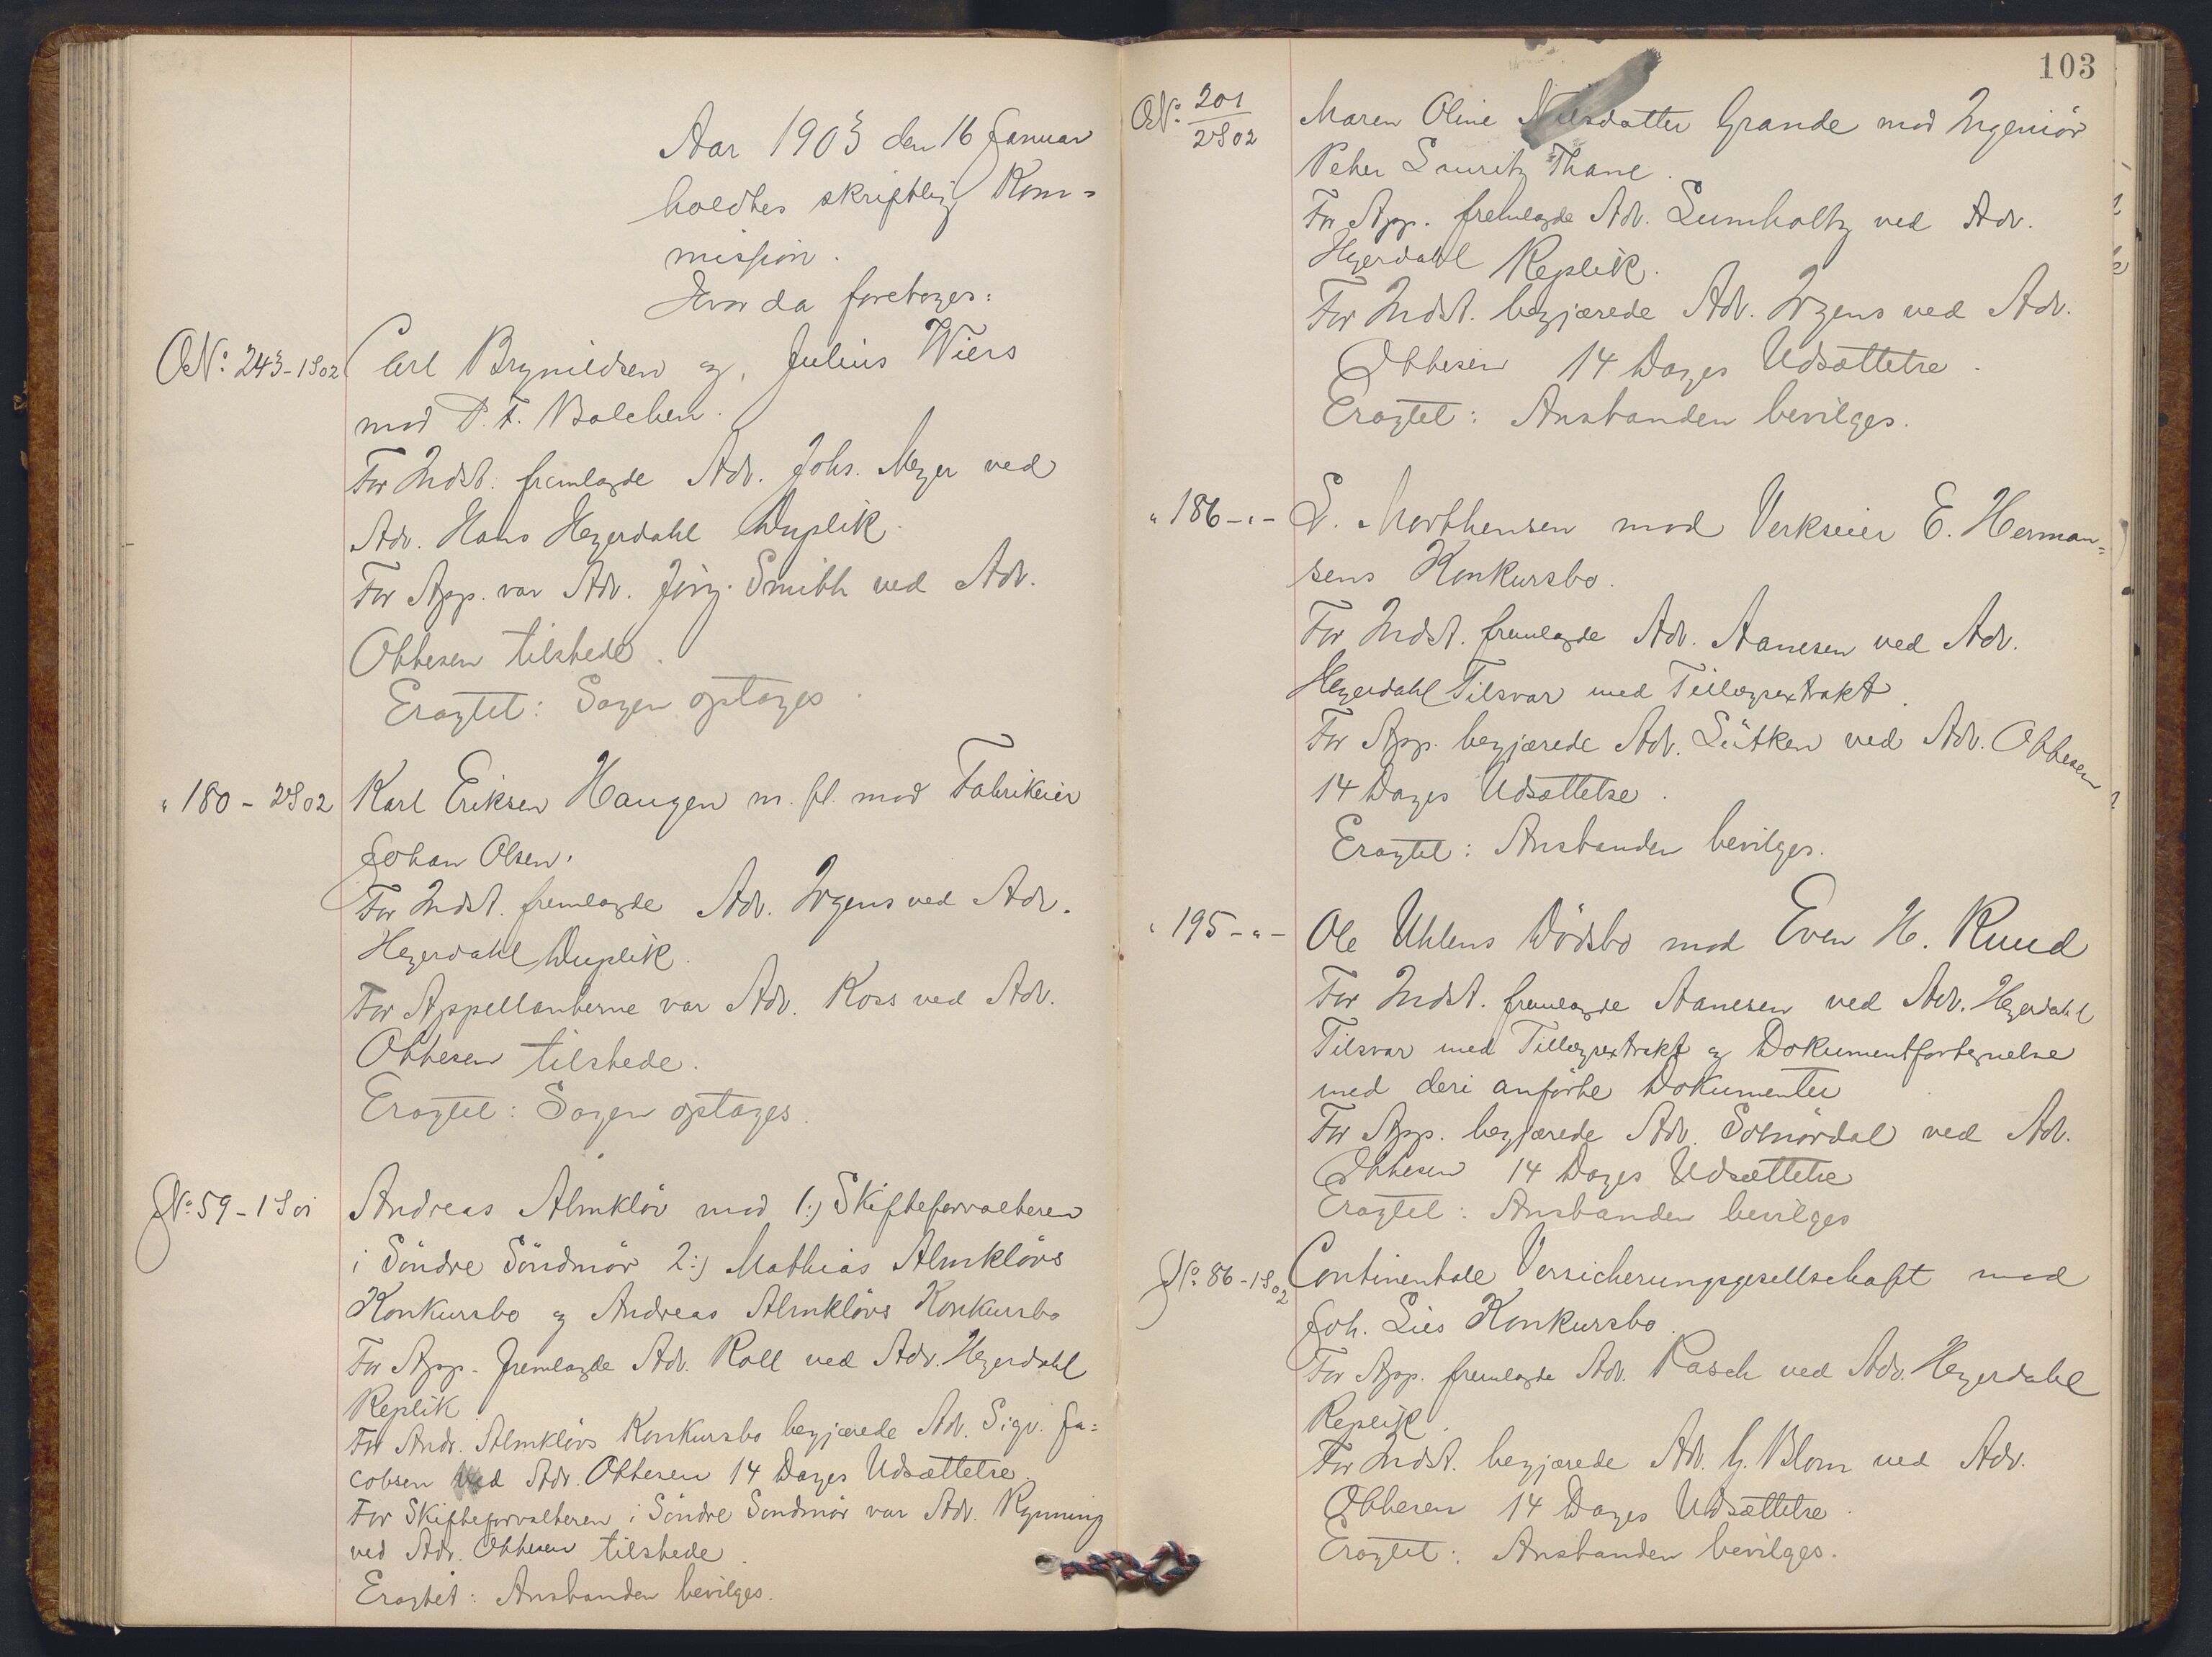 Aar 1903 den 16 Januar
holdtes skriftlig Kom=
mission.
Hvor da foretoges:
ON: 243-1S02 Carl Brynildsen og, Julius Wiers
mod P. F. Balchen.
For Indst. fremlagde Adv. Johs. Meyer ved
Adv. Hans Heyerdahl Duplik.
For App. var Adv. Jörg. Smith ved Adv.
Obbesen tilstede.
Eragtet: Sagen optages.
" 180 - 2S02 Karl Eriksen Haugen m. fl. mod Fabrikeier
Johan Olsen.
For Indst. fremlagde Adv. Irgens ved Adv.
Heyerdahl Duplik.
For Appellanterne var Adv. Koss ved Adv.
Obbesen tilstede.
Eragtet: Sagen optages.
No: 59-1S01 Andreas Almklöv mod 1:) Skifteforvalteren
i Söndre Söndmör 2:) Mathias Almklövs
Konkursbo og Andreas Almklövs Konkursbo
For App. fremlagde Adv. Roll ved Adv. Heyerdahl
Replik
For Andr. Almklövs Konkursbo begjærede Adv. Sigv. Ja=
cobsen ved Adv. Obbesen 14 Dages Udsættelse.
For Skifteforvalteren i Söndre Söndmör var Adv. Rynning
ved Adv. Obbesen tilstede.
Eragtet: Anstanden bevilges.
103
ON: 201/2S02 Maren Oline Nilsdatter Grande mod Ingeniör
Peter Lauritz Thane.
For App. fremlagde Adv. Lumholtz ved Adv.
Heyerdahl Replik.
For Indst. begjærede Adv. Irgens ved Adv.
Obbesen 14 Dages Udsættelse.
Eragtet: Anstanden bevilges.
" 186-"- L. Morthensen mod Verkseier E. Herman=
sens Konkursbo.
For Indst. fremlagde Adv. Aanesen ved Adv.
Heyerdahl Tilsvar med Tillægsextrakt.
For App. begjærede Adv. Lütken ved Adv. Obbesen
14 Dages Udsættelse.
Eragtet: Anstanden bevilges.
" 195-"- Ole Uhlens Dödsbo mod Even H. Ruud
For Indst. fremlagde Aanesen ved Adv. Heyerdahl
Tilsvar med Tillægsextrakt og Dokumentfortegnelse
med deri anförte Dokumenter
For App. begjærede Adv. Solnördal ved Adv.
Obbesen 14 Dages Udsættelse
Eragtet: Anstanden bevilges
No: 86-1S02 Continentale Versicherungsgesellschaft mod
Joh. Lies Konkursbo.
For App. fremlagde Adv. Rasch ved Adv. Heyerdahl
Replik.
For Indst. begjærede Adv. G. Blom ved Adv.
Obbesen 14 Dages Udsættelse.
Eragtet: Anstanden bevilges.